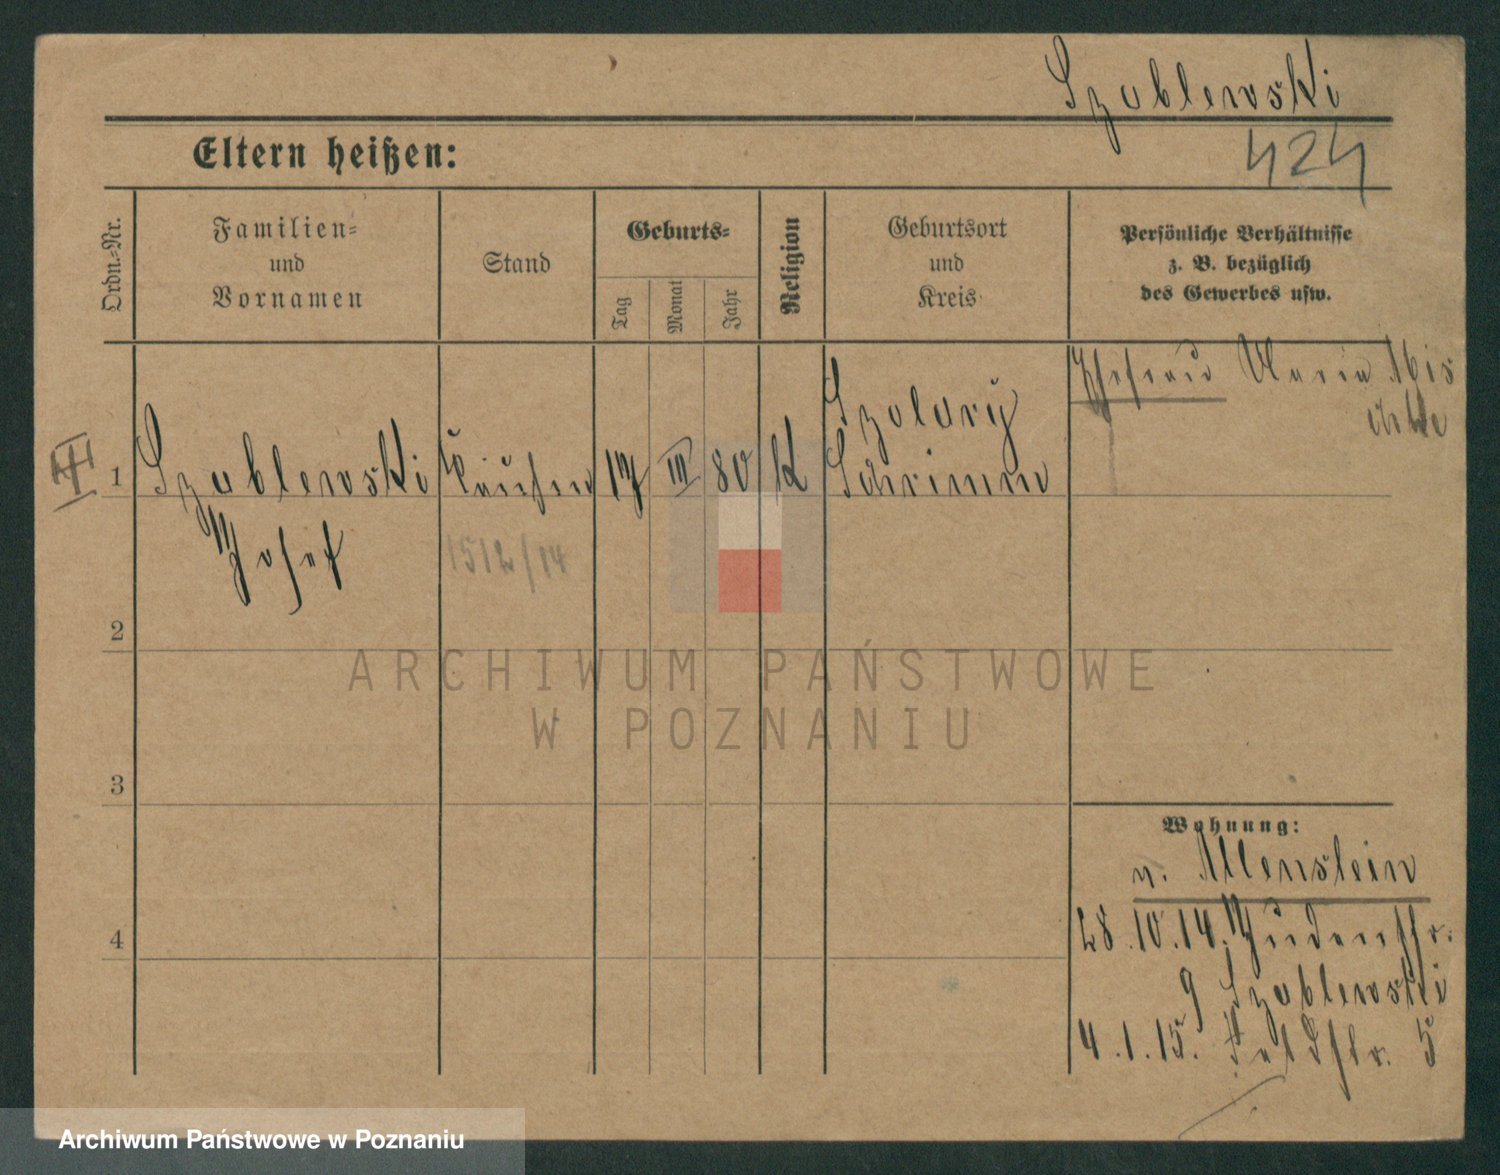 Szablewski
Eltern heißen:
424
Ordn.-Nr.
Familien-
und
Vornamen
Stand
Geburts-
Tag
Monat
Jahr
Religion
Geburtsort
und
Kreis
Persönliche Verhältnisse
z. B. bezüglich
des Gewerbes usw.
1
Szablewski
Josef
1512/14
17 III 80 K
Szoldry
Schrimm
Ehefrau Maria
2
3
4
Wohnung:
v. Allenstein
28.10.14. Judenstr.
9 Szablewski
4.1.15. Feldstr. 5
ARCHIWUM PAŃSTWOWE
W POZNANIU
Archiwum Państwowe w Poznaniu